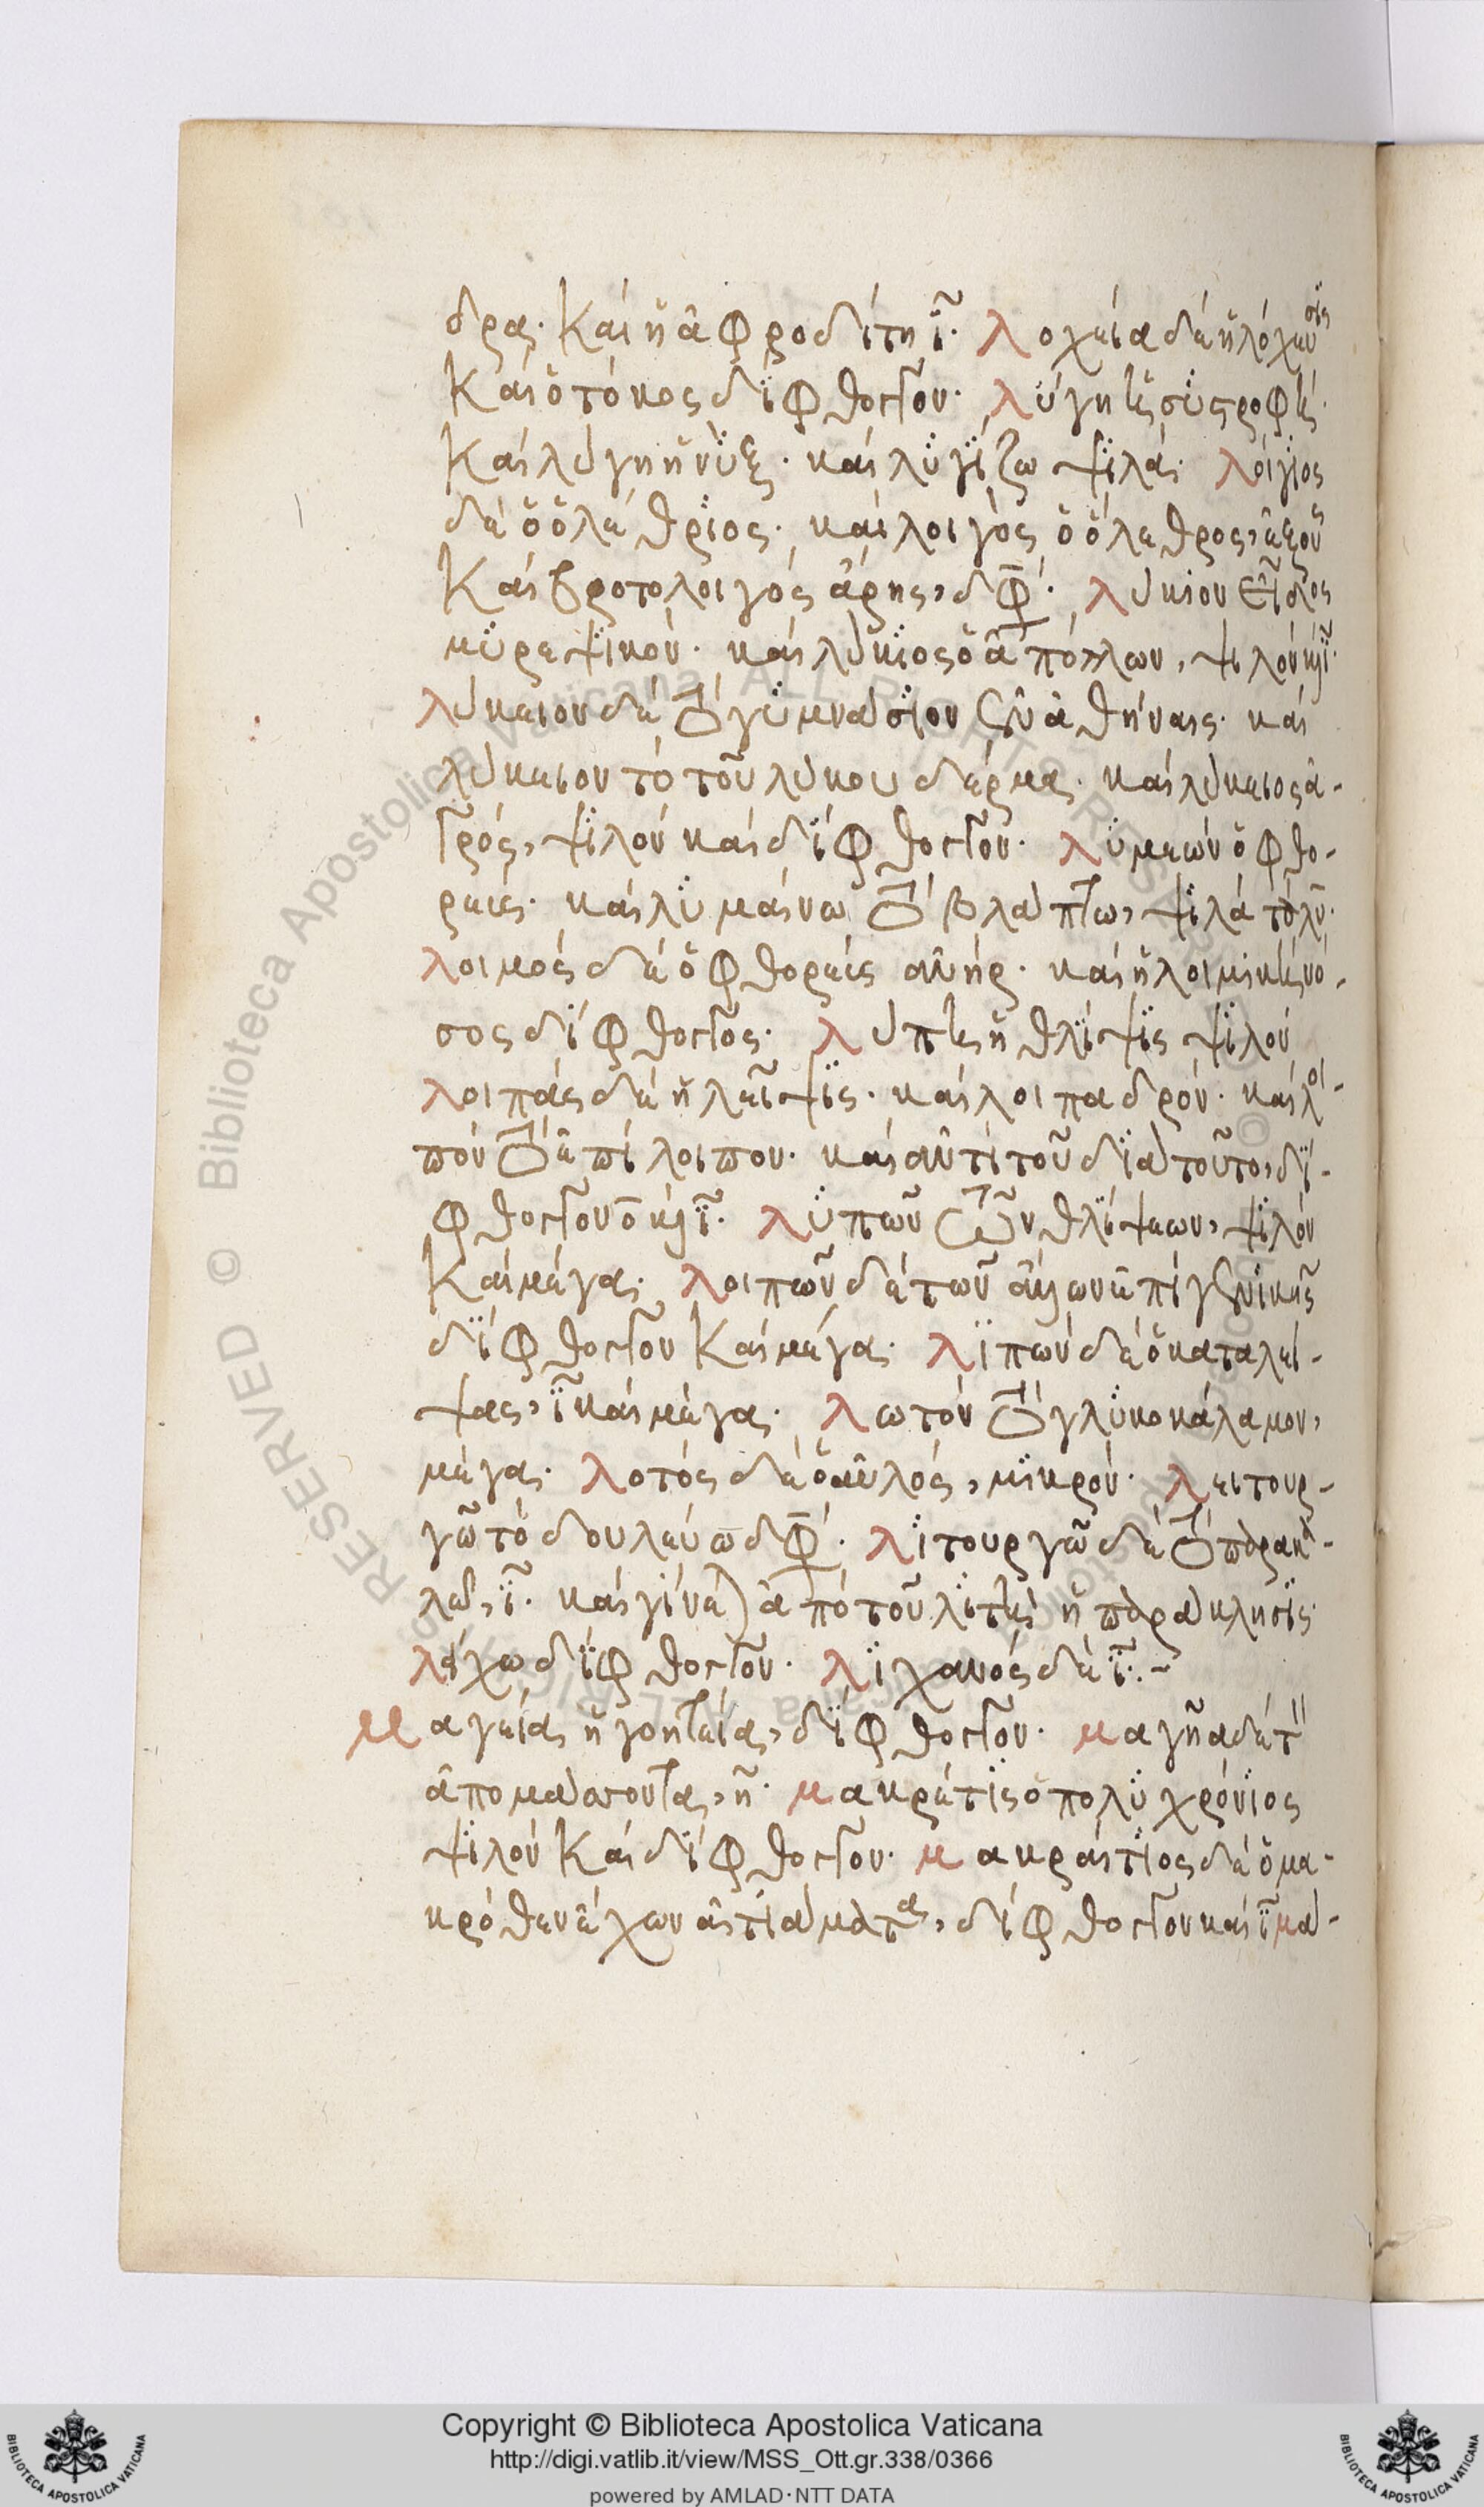 δρα· καὶ ἡ ἀφροδίτη ϊ· λοχεία δὲ ἡ λόχευσις
καὶ ὁ τόκος δίφθογγον· λύγη ἡ συστροφὴ·
καὶ λύγη ἡ νὺξ· καὶ λυγίζω ψιλά· λοίγιος
δὲ ὁ ὀλέθριος· καὶ λοιγὸς ὁ ὄλεθρος, ἐξ οὗ
καὶ βροτολοιγὸς ἄρης, δφ· λύκιον εἶδος
μυρεψικοῦ· καὶ λύκιος ὁ ἀπόλλων, ψιλὸν καὶ ϊ·
λύκειον δὲ τὸ γυμνάσιον ἐν ἀθήναις· καὶ
λύκειον τὸ τοῦ λύκου δέρμα· καὶ λύκειος ἀ-
γρός, ψιλὸν καὶ δίφθογγον· λυμεὼν ὁ φθο-
ρεύς· καὶ λυμαίνω τὸ βλάπτω, ψιλὰ τὸ λυ·
λοιμὸς δὲ ὁ φθορεὺς ἀνήρ· καὶ ἡ λοιμικὴ νό-
σος δίφθογγος· λύπη ἡ θλίψις ψιλὸν
λοιπὰς δὲ ἡ λεῖψις· καὶ λοιπαδρόν· καὶ λοι-
πὸν τὸ ἐπίλοιπον· καὶ ἀντὶ τοῦ διὰ τοῦτο, δί-
φθογγον ο καὶ ϊ· λυπῶν τῶν θλίψεων, ψιλὸν
καὶ μέγα· λοιπῶν δὲ τῶν ἄλλων ἐπὶ γενικῆς
δίφθογγον καὶ μέγα· λιπὼν δὲ ὁ καταλεί-
ψας, ϊ καὶ μέγα· λωτὸν τὸ γλυκοκάλαμον,
μέγα· λοτὸς δὲ ὁ αὐλός, μικρόν· λειτουρ-
γῶ τὸ δουλεύω δφ· λιτουργῶ δὲ τὸ παρακα-
λῶ, ϊ· καὶ γίνεται ἀπὸ τοῦ λιτὴ ἡ παράκλησις·
λείχω δίφθογγον· λιχανὸς δὲ ϊ·~
Μαγεία, ἡ γοητεία, δίφθογγον· μαγῆα δὲ τὸν
ἀπομάσσοντα, η· μακρέτις ὁ πολυχρόνιος
ψιλὸν καὶ δίφθογγον· μακραίτιος δὲ ὁ μα-
κρόθεν ἔχων αἰτιάματα, δίφθογγον καὶ ϊ μα-
Copyright © Biblioteca Apostolica Vaticana
http://digi.vatlib.it/view/MSS_Ott.gr.338/0366
powered by AMLAD·NTT DATA